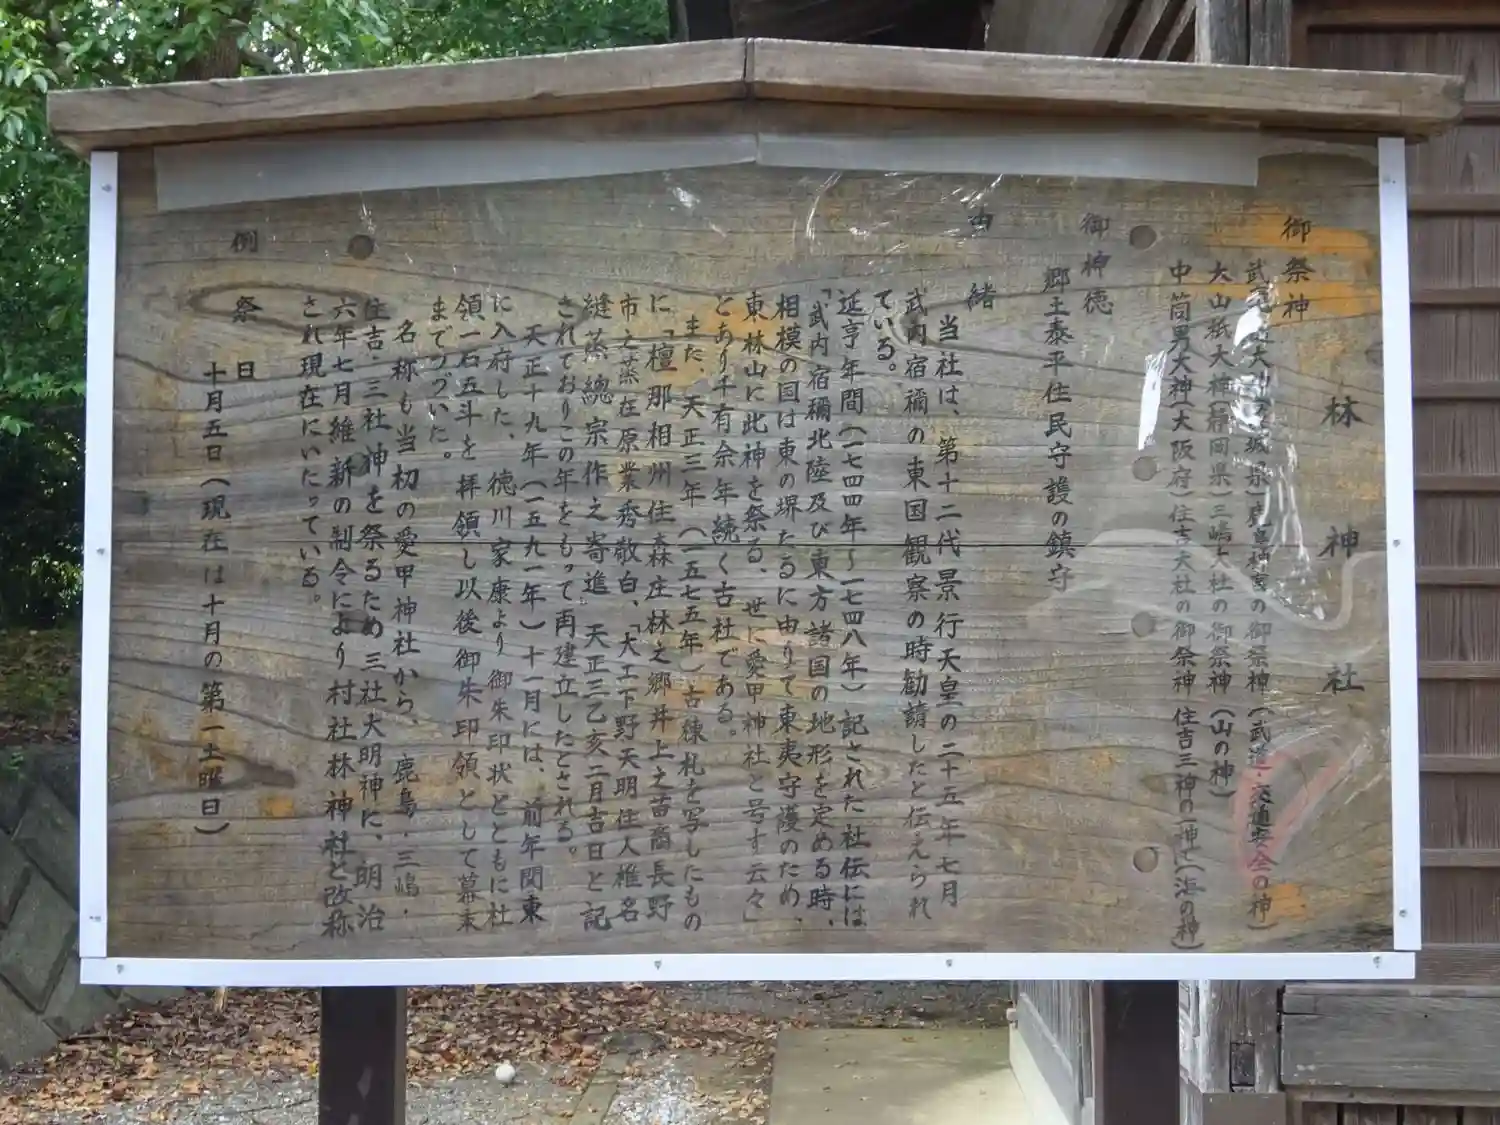 林神社
御祭神
武甕槌大神(茨城県)鹿島神宮の御祭神(武道・交通安全の神)
大山祇大神(静岡県)三嶋大社の御祭神(山の神)
中筒男大神(大阪府)住吉大社の御祭神 住吉三神の一神で(海の神)
御神徳
郷土泰平住民守護の鎮守
由緒
当社は、第十二代景行天皇の二十五年七月
武内宿禰の東国観察の時勧請したと伝えられ
ている。
延享年間(一七四四年〜一七四八年)記された社伝には
「武内宿禰北陸及び東方諸国の地形を定める時、
相模の国は東の堺たるに由りて東夷守護のため、
東林山に此神を祭る、世に愛甲神社と号す云々」
とあり千有余年続く古社である。
また、天正三年(一五七五年)古棟札を写したもの
に「檀那相州住森庄林之郷井上之苗裔長野
市之丞在原業秀敬白、「大工下野天明住人椎名
縫丞總宗作之寄進 天正三乙亥二月吉日と記
されておりこの年をもって再建立したとされる。
天正十九年(一五九一年)十一月には、前年関東
に入府した、徳川家康より御朱印状とともに社
領一石五斗を拝領し以後御朱印領として幕末
までつづいた。
名称も当初の愛甲神社から、鹿島・三嶋・
住吉・三社神を祭るため三社大明神に、明治
六年七月維新の制令により村社林神社と改称
され現在にいたっている。
例祭日
十月五日(現在は十月の第一土曜日)